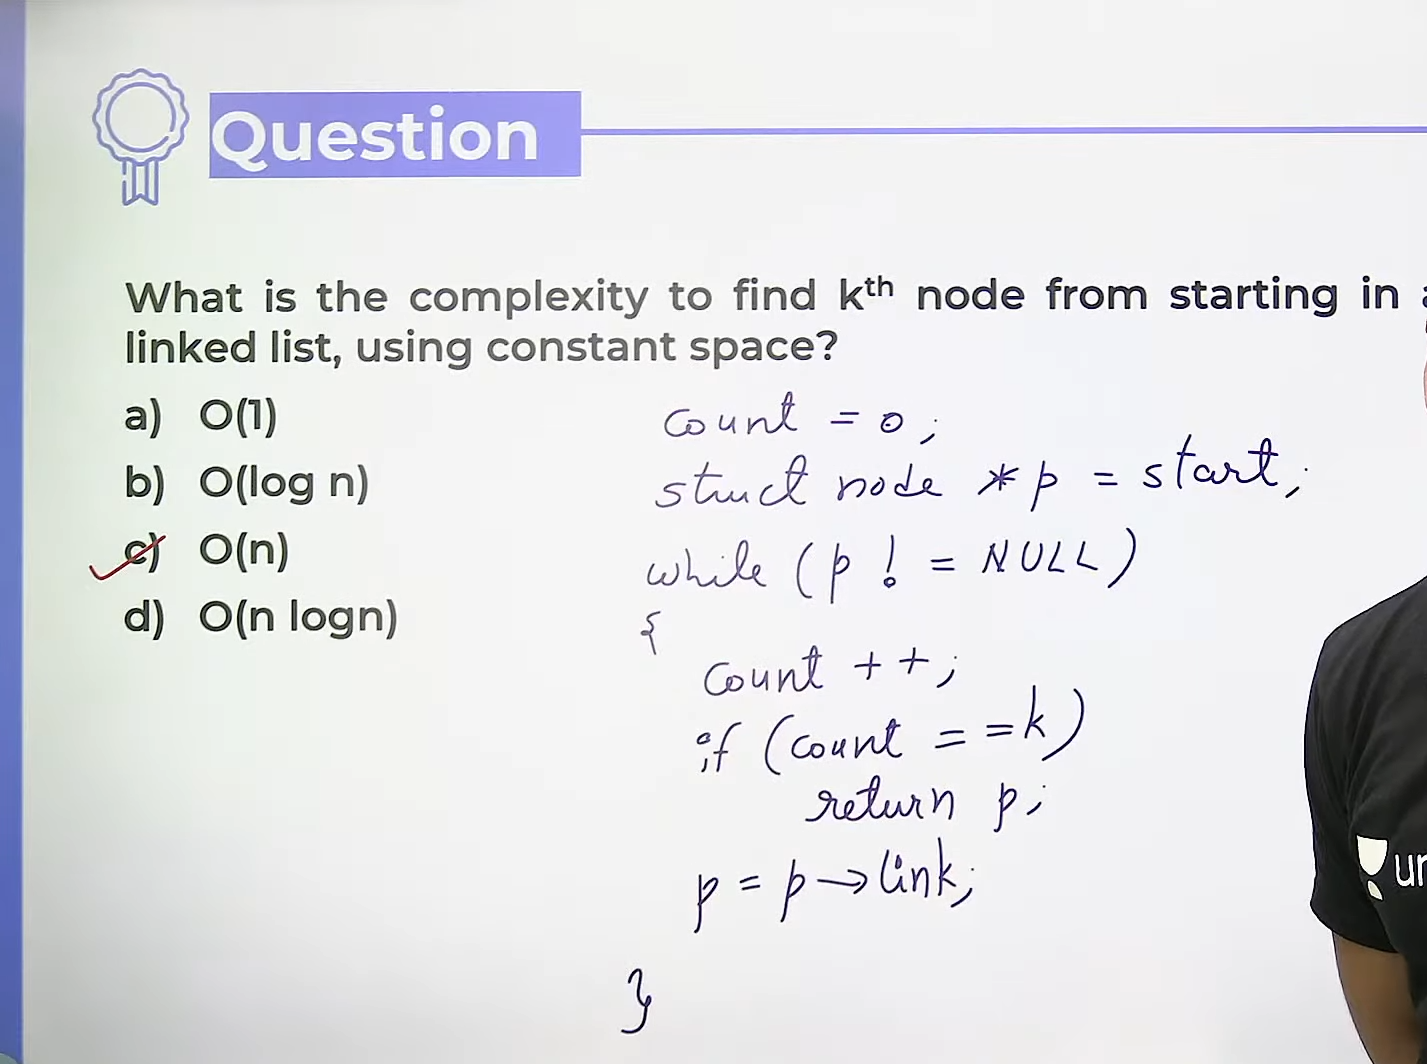 Question
What is the complexity to find kth node from starting in
linked list, using constant space?
a) O(1)
b) O(log n)
c) O(n)
d) O(n logn)
count = 0;
struct node *p = start;
while (p != NULL)
{
count ++;
if (count == k)
return p;
p = p → link;
}